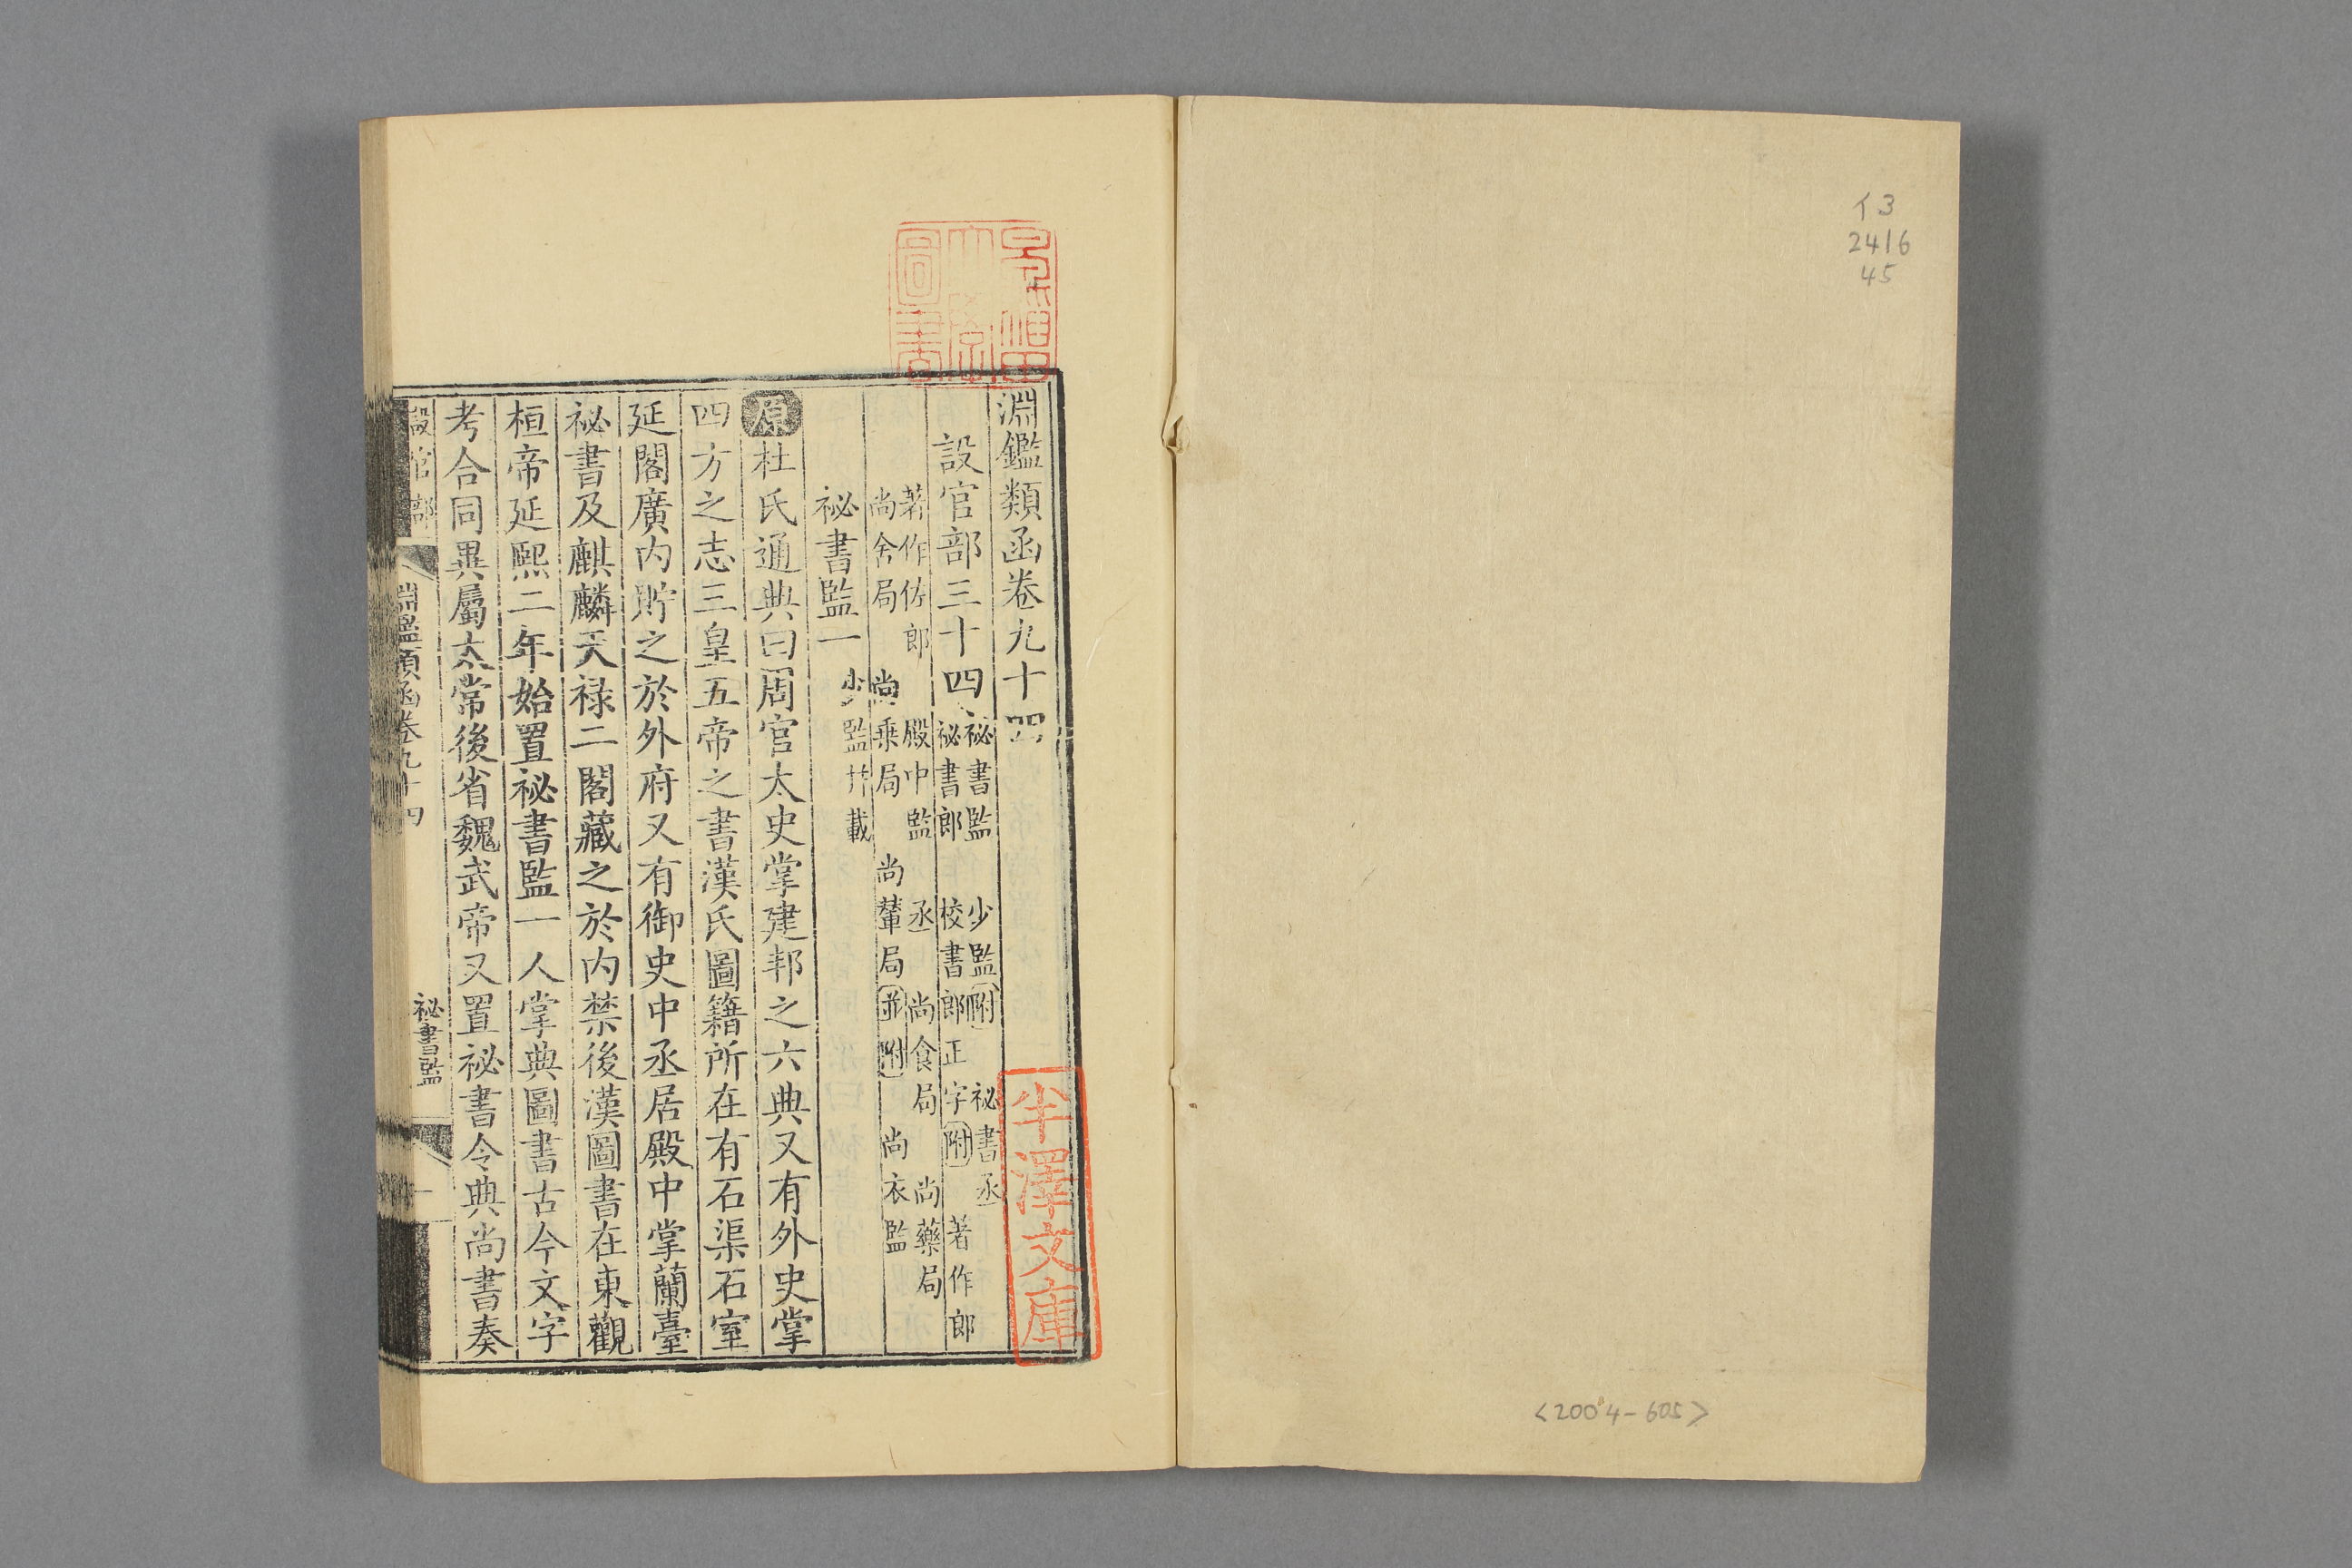 イ3
2416
45
<2004-605>
早稲田大學圖書
淵鑑類函卷九十四
半澤文庫
設官部三十四
祕書監　少監附　祕書丞
祕書郎　校書郎正字附　著作郎
著作佐郎　殿中監　丞　尚食局　尚藥局
尚舍局　尚乗局　尚輦局並附　尚衣監
祕書監一　少監廾載
原杜氏通典曰周官太史掌建邦之六典又有外史掌
四方之志三皇五帝之書漢氏圖籍所在有石渠石室
延閣廣内貯之於外府又有御史中丞居殿中掌蘭臺
祕書及麒麟天祿二閣藏之於内禁後漢圖書在東觀
桓帝延熙二年始置祕書監一人掌典圖書古今文字
考合同異屬太常後省魏武帝又置祕書令典尚書奏
設官部　淵鑑類函卷九十四　祕書監　一